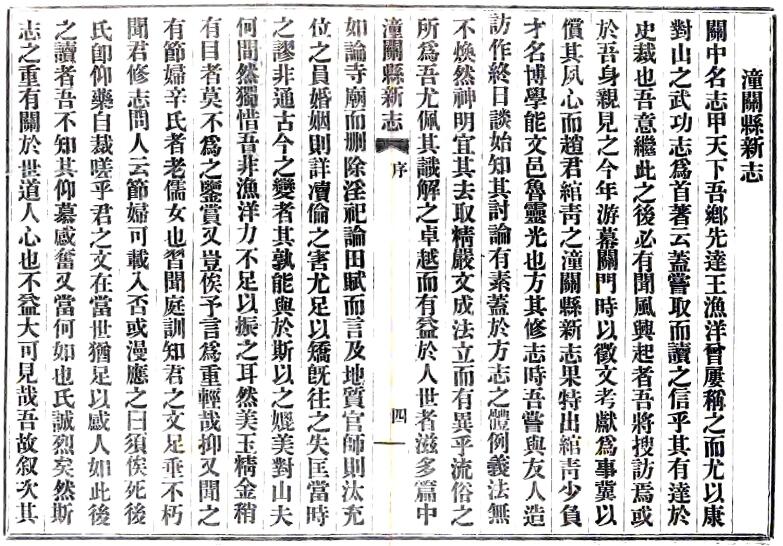 潼關縣新志
關中名志甲天下吾鄉先達王漁洋曾屢稱之而尤以康
對山之武功志爲首著云蓋嘗取而讀之信乎其有達於
史裁也吾意繼此之後必有聞風興起者吾將搜訪焉或
於吾身親見之今年游幕關門時以徵文考獻爲事冀以
償其夙心而趙君綰青之潼關縣新志果特出綰青少負
才名博學能文邑魯靈光也方其修志時吾嘗與友人造
訪作終日談始知其討論有素蓋於方志之體例義法無
不煥然神明宜其去取精嚴文成法立而有異乎流俗之
所爲吾尤佩其識解之卓越而有益於人世者滋多篇中
潼關縣新志
序
四
如論寺廟而刪除淫祀論田賦而言及地質官師則汰充
位之員婚姻則詳瀆倫之害尤足以矯旣往之失匡當時
之謬非通古今之變者其孰能與於斯以之媲美對山夫
何間然獨惜吾非漁洋力不足以振之耳然美玉精金稍
有目者莫不爲之鑒賞又豈俟予言爲重輕哉抑又聞之
有節婦辛氏者老儒女也習聞庭訓知君之文足垂不朽
聞君修志問人云節婦可載入否或漫應之曰須俟死後
氏卽仰藥自裁嗟乎君之文在當世猶足以感人如此後
之讀者吾不知其仰慕感奮又當何如也氏誠烈矣然斯
志之重有關於世道人心也不益大可見哉吾故叙次其